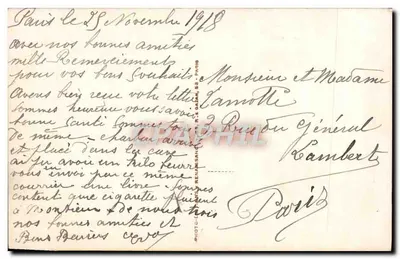 Paris le 25 Novembre 1918
avec nos bonnes amitiés
mille Remerciements
pour vos bons souhaits
avons bien recu votre lettre
sommes heureux vous savoir
bonne santé sommes
De même - charbon
et placé dans la cave
ai pu avoir un kilo beurre
vous envoi par ce même
courrier une livre - sommes
content que cigarette plaisent
à Monsieur - de nous trois
nos bonnes amitiés et
Bons Baisers
Monsieur et Madame
Lamotte
9 Rue du Général
Lambert
Paris